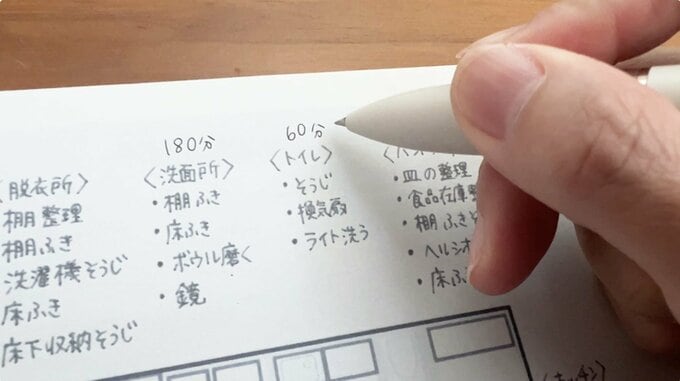 180分
60分
〈脱衣所〉
棚整理
棚ふき
洗濯機そうじ
床ふき
床下収納そうじ
〈洗面所〉
・棚ふき
・床ふき
・ボウル磨く
・鏡
〈トイレ〉
・そうじ
・換気扇
・ライト洗う
・皿の整理
・食品在庫整
・棚ふき
・ヘルシオ
・床ふ